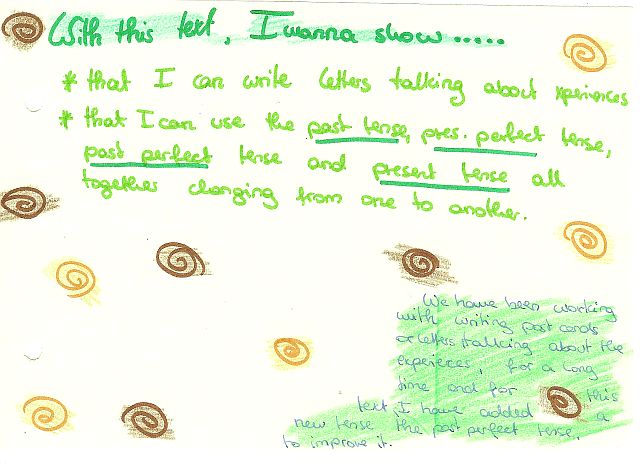 With this text, I wanna show.....
* that I can write letters talking about xperiences
* that I can use the past tense, pres. perfect tense,
past perfect tense and present tense all
together changing from one to another.
We have been working
with writing post cards
or letters talking about the
experiences, for a long
time and for this
text I have added a
new tense the past perfect tense,
to improve it.